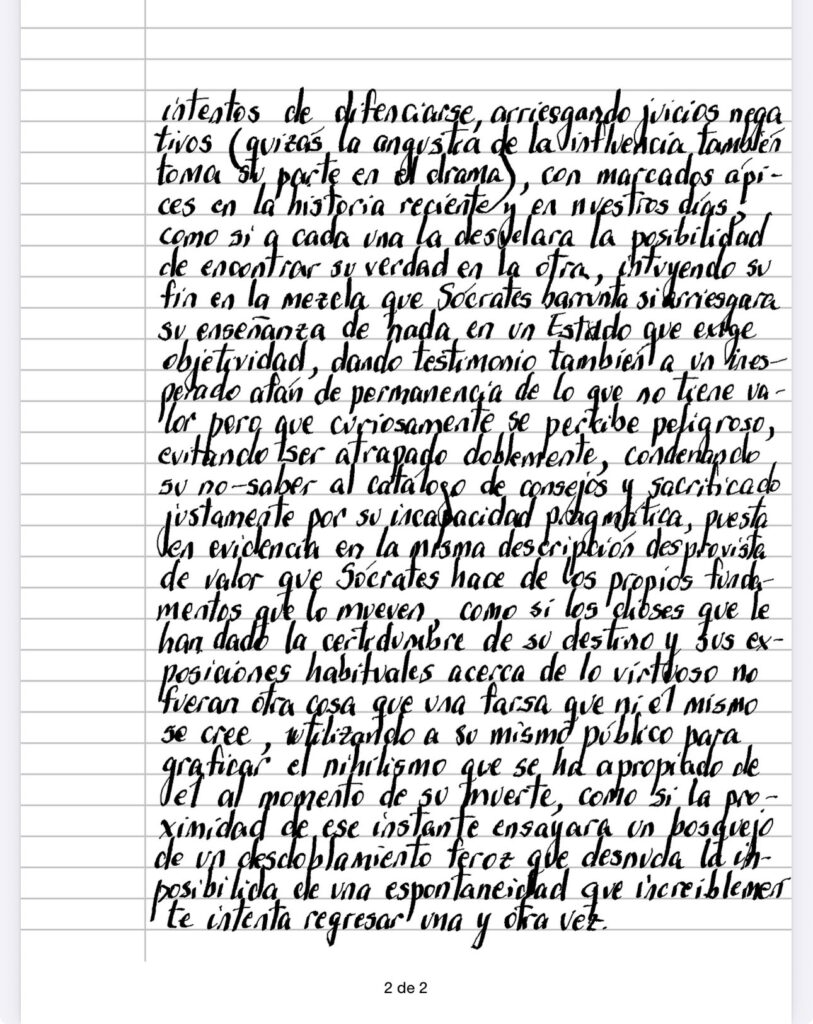 intentos de difenciarse, arriesgando juicios nega
tivos (quizás la angustia de la influencia también
toma su parte en el drama), con marcados ápi-
ces en la historia reciente y en nuestros días,
como si a cada una la desvelara la posibilidad
de encontrar su verdad en la otra, intuyendo su
fin en la mezcla que Sócrates barrunta si arriesgara
su enseñanza de nada en un Estado que exige
objetividad, dando testimonio también a un ines-
perado afán de permanencia de lo que no tiene va-
lor pero que curiosamente se percibe peligroso,
evitando ser atrapado doblemente, condenando
su no-saber al catálogo de consejos y sacrificado
justamente por su incapacidad pragmática, puesta
en evidencia en la misma descripción desprovista
de valor que Sócrates hace de los propios funda-
mentos que lo mueven, como si los dioses que le
han dado la certidumbre de su destino y sus ex-
posiciones habituales acerca de lo virtuoso no
fueran otra cosa que una farsa que ni él mismo
se cree, utilizando a su mismo público para
graficar el nihilismo que se ha apropiado de
él al momento de su muerte, como si la pro-
ximidad de ese instante ensayara un bosquejo
de un desdoblamiento feroz que desnuda la im-
posibilida de una espontaneidad que increiblemen
te intenta regresar una y otra vez.
2 de 2